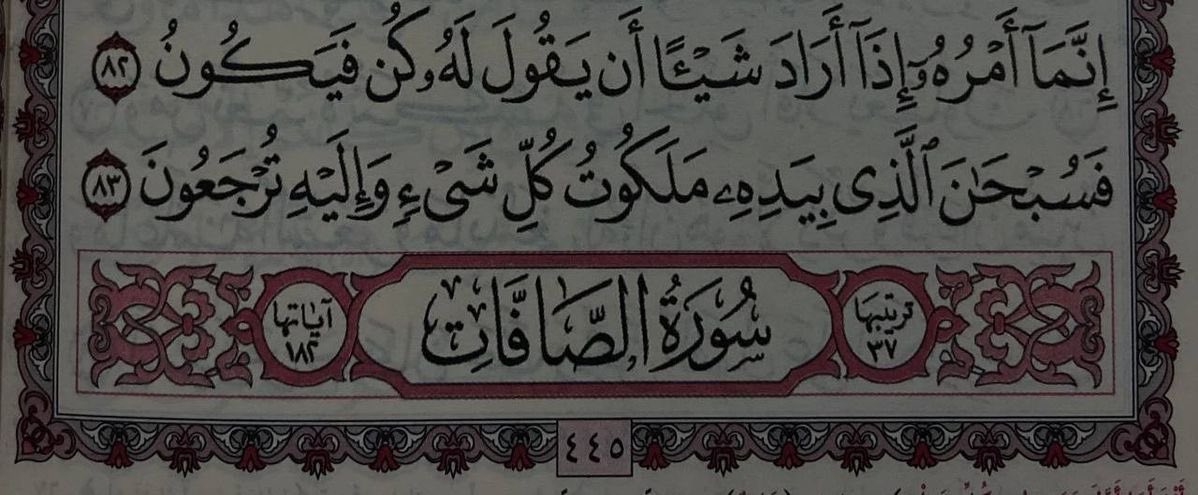 إِنَّمَآ أَمْرُهُۥٓ إِذَآ أَرَادَ شَيْـًٔا أَن يَقُولَ لَهُۥ كُن فَيَكُونُ ٨٢
فَسُبْحَٰنَ ٱلَّذِى بِيَدِهِۦ مَلَكُوتُ كُلِّ شَىْءٍ وَإِلَيْهِ تُرْجَعُونَ ٨٣
ترتيبها ٣٧
سُورَةُ الصَّافَّاتِ
آياتها ١٨٢
٤٤٥